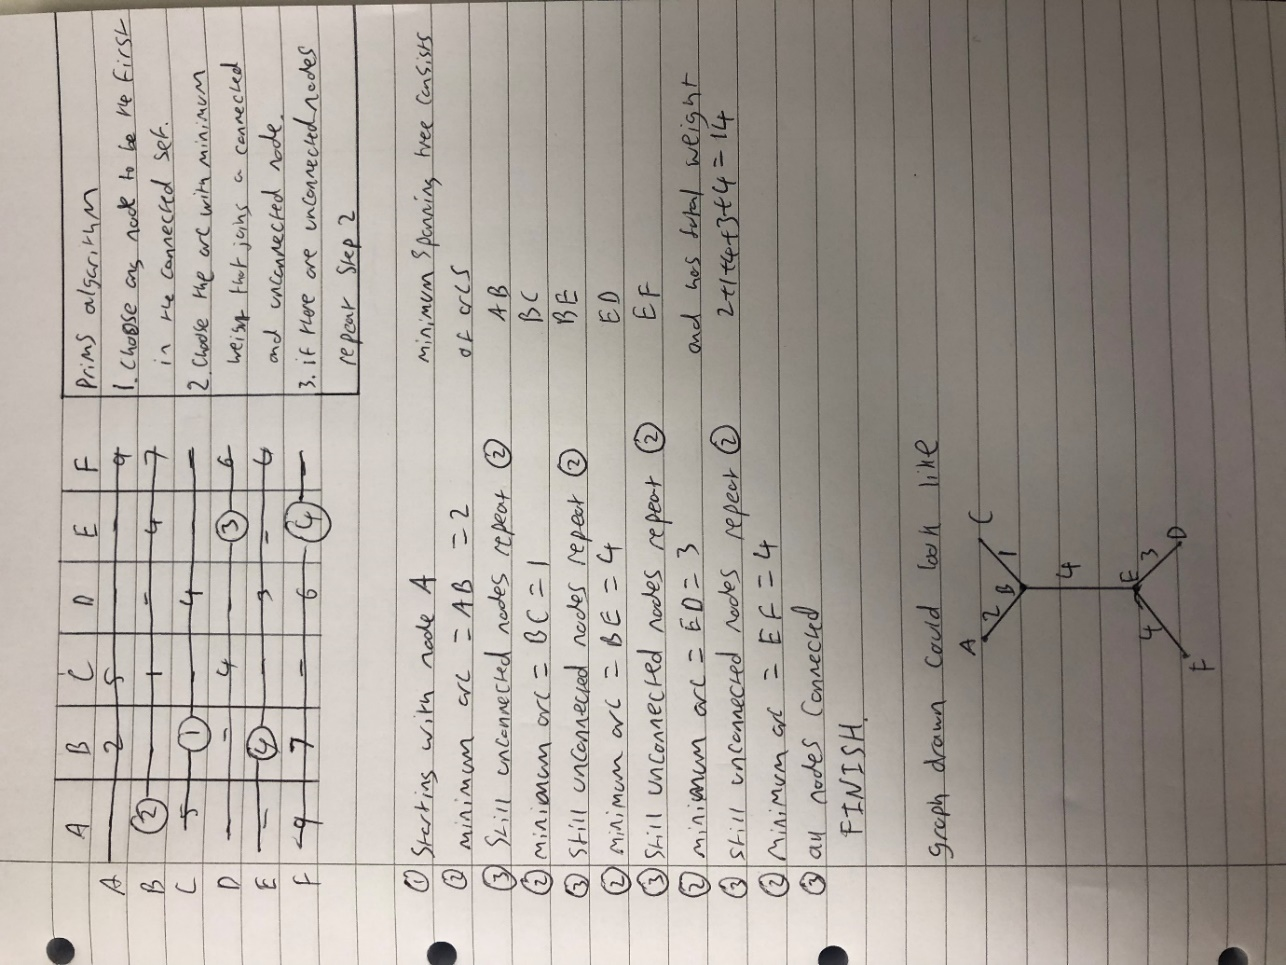 A B C D E F
A — 2 5 — — 9
B ② — 1 — 4 7
C 5 ① — 4 — —
D — — 4 — ③ 6
E — ④ — 3 — 4
F 9 7 — 6 ④ —
Prims algorithm
1. Choose any node to be the first
in the connected set.
2. Choose the arc with minimum
weight that joins a connected
and unconnected node.
3. if there are unconnected nodes
repeat step 2
① Starting with node A
② minimum arc = AB = 2
③ Still unconnected nodes repeat ②
② minimum arc = BC = 1
③ Still unconnected nodes repeat ②
② minimum arc = BE = 4
③ Still unconnected nodes repeat ②
② minimum arc = ED = 3
③ still unconnected nodes repeat ②
② minimum arc = EF = 4
③ all nodes connected
FINISH.
minimum spanning tree consists
of arcs
AB
BC
BE
ED
EF
and has total weight
2+1+4+3+4 = 14
graph drawn could look like
A C
2 1
B
4
E
4 3
F D